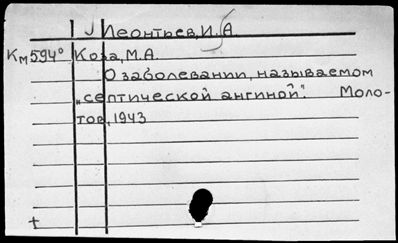 Леонтьев, И. А.
Км594° Коза, М.А.
О заболевании, называемом
„септической ангиной". Моло-
тов, 1943